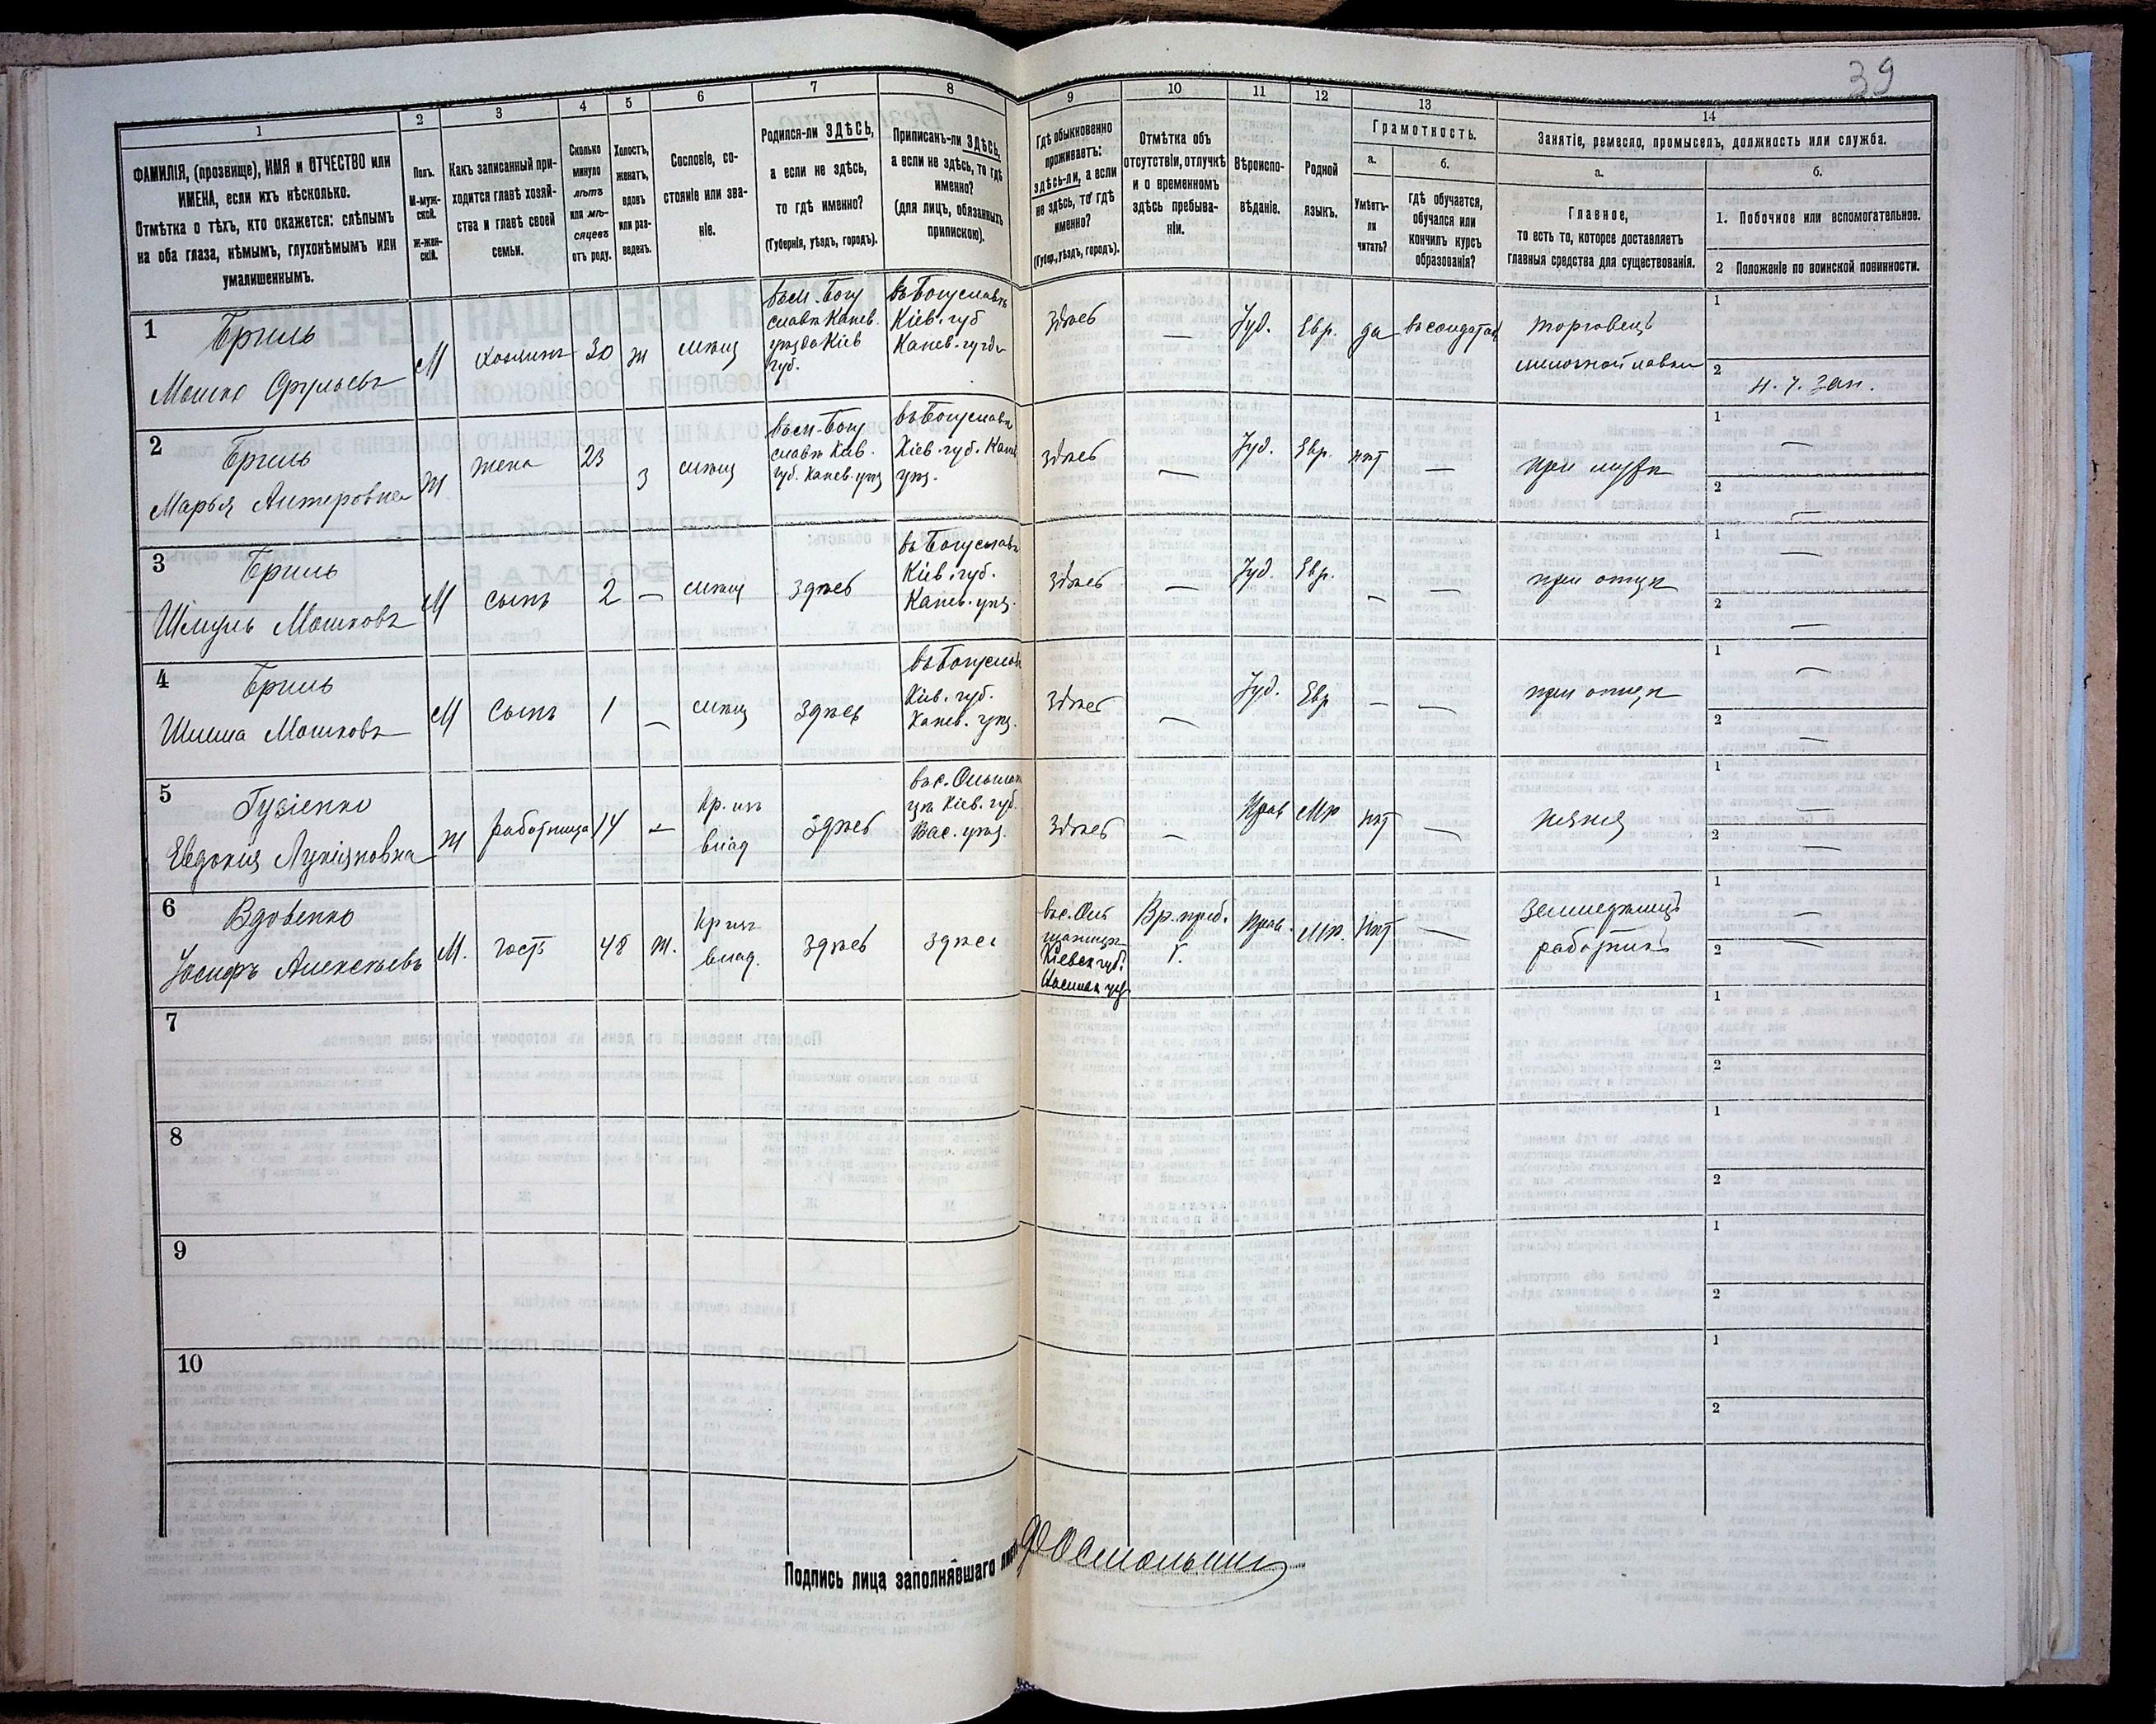 39
1
2
3
4
5
6
7
8
9
10
11
12
13
14
ФАМИЛІЯ, (прозвище), ИМЯ и ОТЧЕСТВО или
ИМЕНА, если ихъ нѣсколько.
Отмѣтка о тѣхъ, кто окажется: слѣпымъ
на оба глаза, нѣмымъ, глухонѣмымъ или
умалишеннымъ.
Полъ.
М-муж-
ской.
Ж-жен-
скій.
Какъ записанный при-
ходится главѣ хозяй-
ства и главѣ своей
семьи.
Сколько
минуло
лѣтъ
или мѣ-
сяцевъ
отъ роду.
Холостъ,
женатъ,
вдовъ
или раз-
веденъ.
Сословіе, со-
стояніе или зва-
ніе.
Родился-ли ЗДѢСЬ,
а если не здѣсь,
то гдѣ именно?
(Губернія, уѣздъ, городъ).
Приписанъ-ли ЗДѢСЬ,
а если не здѣсь, то гдѣ
именно?
(для лицъ, обязанныхъ
припискою).
Гдѣ обыкновенно
проживаетъ:
здѣсь-ли, а если
не здѣсь, то гдѣ
именно?
(Губер., уѣздъ, городъ).
Отмѣтка объ
отсутствіи, отлучкѣ
и о временномъ
здѣсь пребыва-
ніи.
Вѣроиспо-
вѣданіе.
Родной
языкъ.
Грамотность.
а.
Умѣетъ-
ли
читать?
б.
гдѣ обучается,
обучался или
кончилъ курсъ
образованія?
Занятіе, ремесло, промыселъ, должность или служба.
а.
Главное,
то есть то, которое доставляетъ
главныя средства для существованія.
б.
1. Побочное или вспомогательное.
2 Положеніе по воинской повинности.
1
Бриль
Мошко Срульевъ
М
хозяинъ
30
ж
мѣщ
въ м. Богу
славѣ Канев.
уѣзда Кіев
губ.
въ Богуславѣ
Кіев. губ
Канев. уѣзд
здѣсь
—
Іуд.
Евр.
да
въ солдатах
торговецъ
мелочной лавки
1
2
2
Бриль
Марья
Ж
жена
23
з
мѣщ
въ м. Богу
славѣ Кіев.
губ. Канев. уѣз
въ Богуславѣ
Кіев. губ. Канев
уѣз.
здѣсь
—
Іуд.
Евр.
нѣт
—
при мужѣ
1 —
2 —
3
Бриль
Шмуль Мошковъ
М
сынъ
2
—
мѣщ
здѣсь
въ Богуславѣ
Кіев. губ.
Канев. уѣз.
здѣсь
—
Іуд.
Евр.
—
—
при отцѣ
1 —
2 —
4
Бриль
Мошковъ
М
сынъ
1
—
мѣщ
здѣсь
въ Богуслав
Кіев. губ.
Канев. уѣз.
здѣсь
—
Іуд.
Евр
—
—
при отцѣ
1 —
2 —
5
Гузіенко
Евдокия Лукіяновна
Ж
работница
14
—
Кр. изъ
влад
здѣсь
Кіев. губ.
Вас. уѣз.
здѣсь
—
Прав
Мр
нѣт
—
няня
1 —
2 —
6
Вдовенко
Іосифъ Алексѣевъ
М.
гость
48
ж.
Кр изъ
влад.
здѣсь
здѣсь
Кіевск губ.
Вр. преб.
Прав.
Мр.
нѣт
—
земледѣлецъ
работникъ
1 —
2 —
7
1
2
8
1
2
9
1
2
10
1
2
Подпись лица заполнявшаго